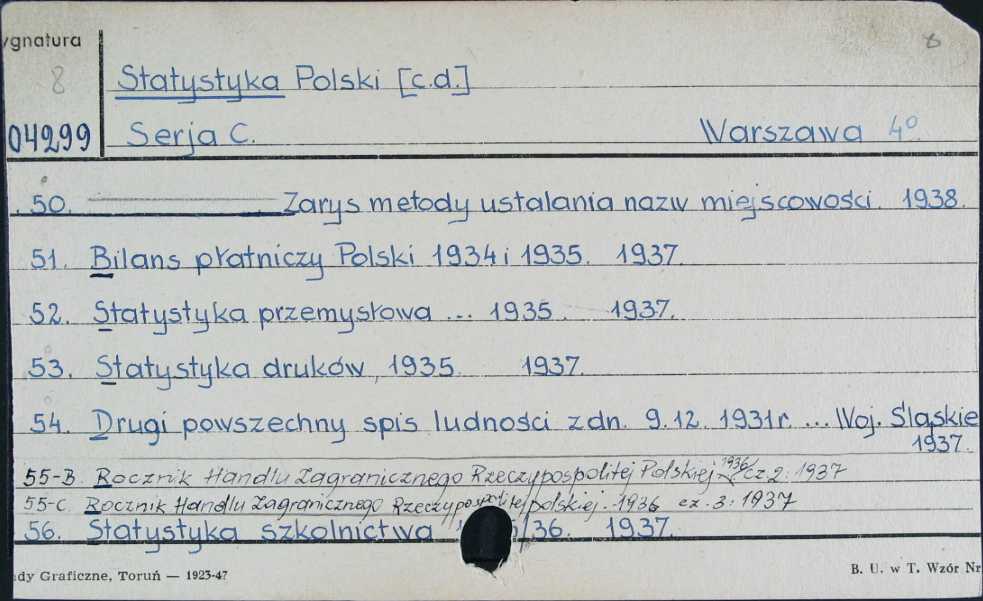 ygnatura 8
8 Statystyka Polski [c.d.]
04299 Serja C. Warszawa 4°
50. Zarys metody ustalania nazw miejscowości. 1938.
51. Bilans płatniczy Polski 1934 i 1935. 1937.
52. Statystyka przemysłowa ... 1935. 1937.
53. Statystyka druków, 1935. 1937.
54. Drugi powszechny spis ludności z dn. 9.12. 1931r. ... Woj. Śląskie
1937.
55-B. Rocznik Handlu Zagranicznego Rzeczypospolitej Polskiej 1936 cz 2: 1937
55-C. Rocznik Handlu Zagranicznego Rzeczypospolitej polskiej. 1936 cz. 3: 1937
56. Statystyka szkolnictwa 5/36. 1937.
dy Graficzne, Toruń — 1923-47 B. U. w T. Wzór Nr